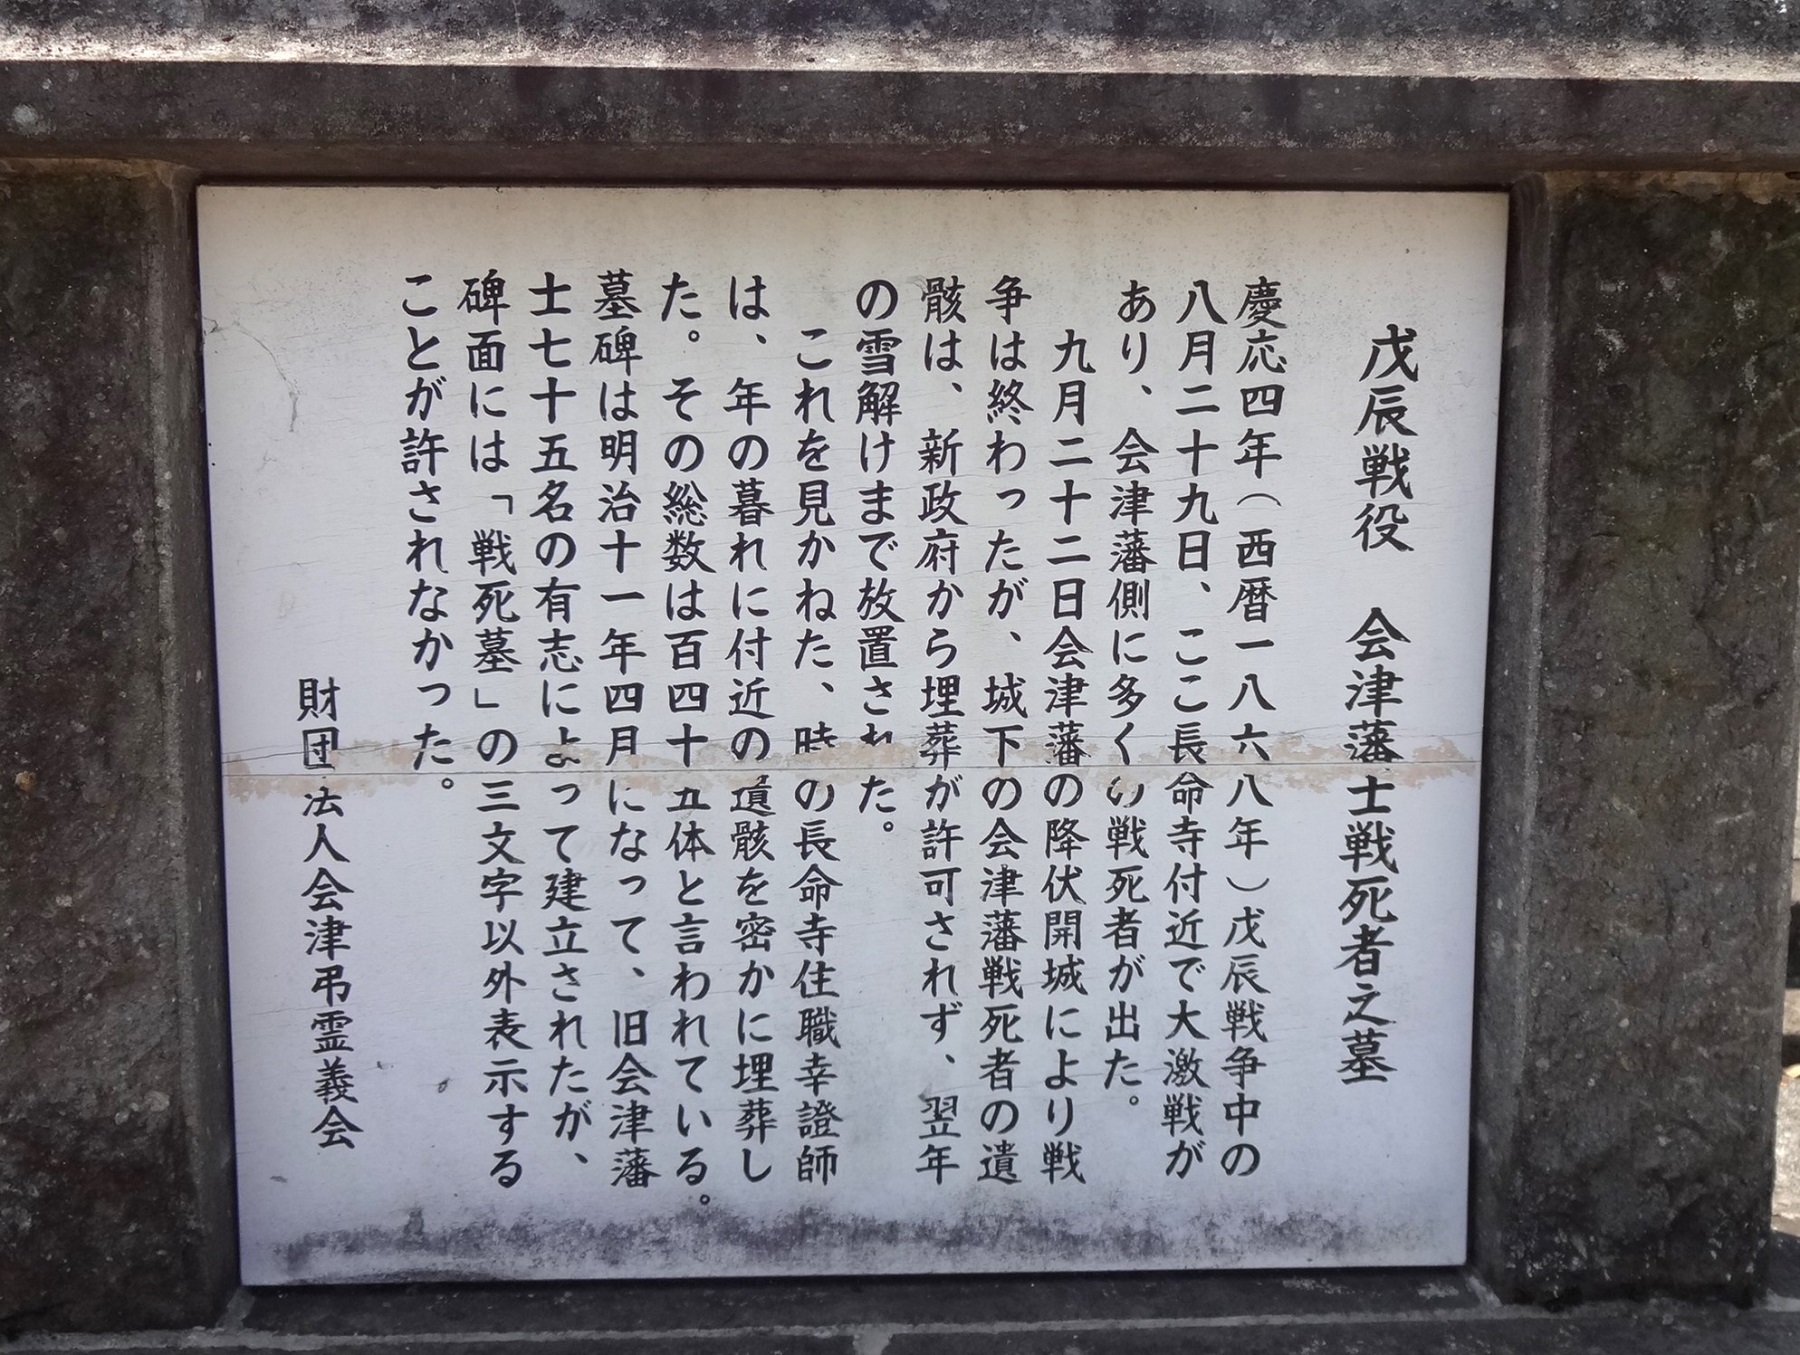 戊辰戦役　会津藩士戦死者之墓
慶応四年（西暦一八六八年）戊辰戦争中の
八月二十九日、ここ長命寺付近で大激戦が
あり、会津藩側に多くの戦死者が出た。
九月二十二日会津藩の降伏開城により戦
争は終わったが、城下の会津藩戦死者の遺
骸は、新政府から埋葬が許可されず、翌年
の雪解けまで放置された。
これを見かねた、時の長命寺住職幸證師
は、年の暮れに付近の遺骸を密かに埋葬し
た。その総数は百四十五体と言われている。
墓碑は明治十一年四月になって、旧会津藩
士七十五名の有志によって建立されたが、
碑面には「戦死墓」の三文字以外表示する
ことが許されなかった。
財団法人会津弔霊義会